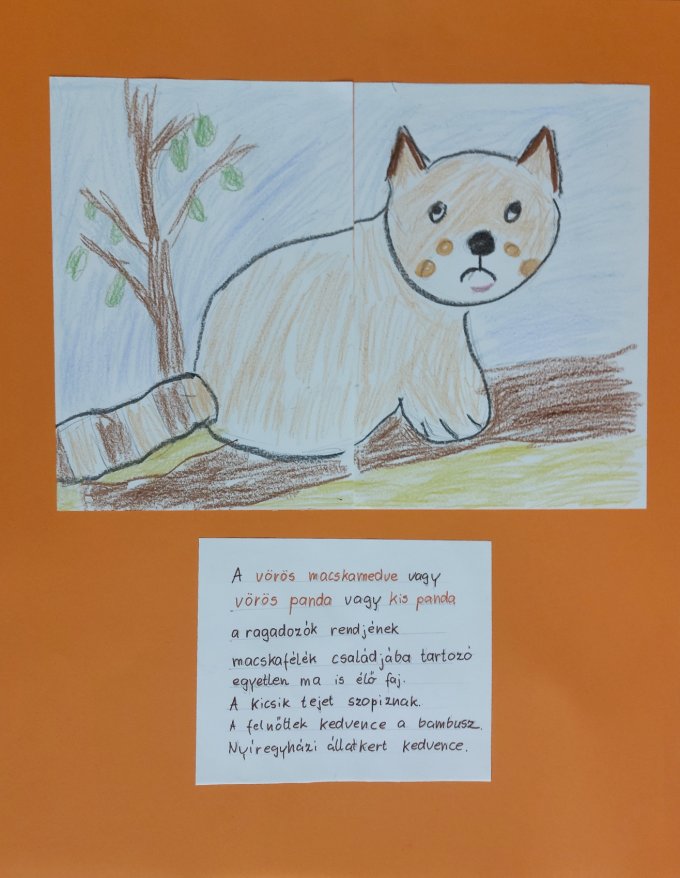 A vörös macskamedve vagy
vörös panda vagy kis panda
a ragadozók rendjének
macskafélék családjába tartozó
egyetlen ma is élő faj.
A kicsik tejet szopiznak.
A felnőttek kedvence a bambusz.
Nyíregyházi állatkert kedvence.